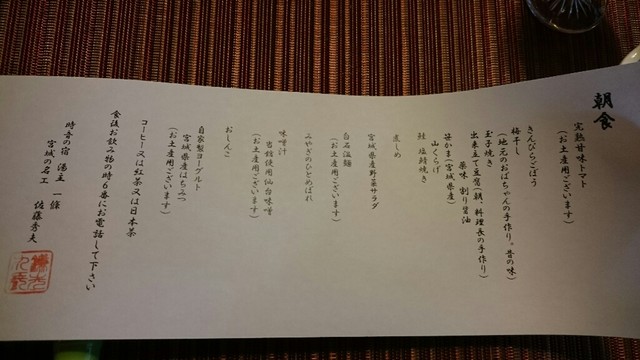 朝食
完熟甘味トマト
(お土産用ございます)
きんぴらごぼう
梅干し
(地元のおばちゃんの手作り。昔の味)
玉子焼き
出来立て豆腐(朝、料理長の手作り)
薬味 割り醤油
笹かま(宮城県産)
山くらげ
鮭 塩焼き
煮しめ
宮城県産野菜サラダ
白石温麺
(お土産用ございます)
みやぎのひとめぼれ
味噌汁
当館使用仙台味噌
(お土産用ございます)
おしんこ
自家製ヨーグルト
宮城県産はちみつ
(お土産用ございます)
コーヒー又は紅茶又は日本茶
食後お飲み物の時6番にお電話して下さい
時音の宿 湯主 一條
宮城の名工 佐藤秀夫